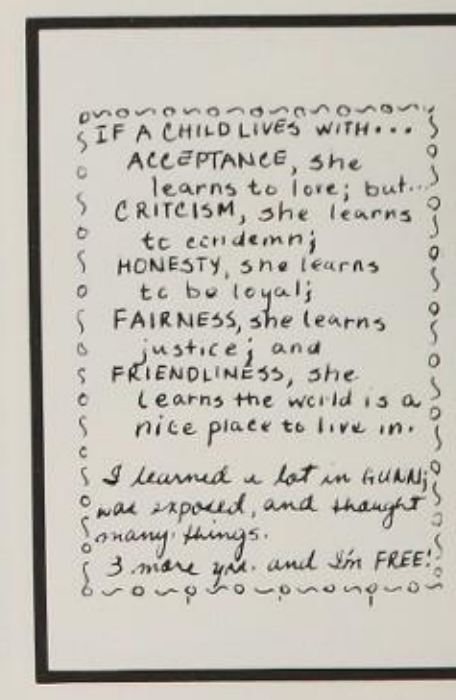 IF A CHILD LIVES WITH...
ACCEPTANCE, she
learns to love; but...
CRITCISM, she learns
to condemn;
HONESTY, she learns
to be loyal;
FAIRNESS, she learns
justice; and
FRIENDLINESS, she
learns the world is a
nice place to live in.
I learned a lot in GUNN;
was exposed, and thought
many things.
3 more yrs. and I'm FREE!